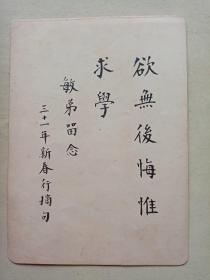 欲無後悔惟
求學
敏弟留念
三十一年新春行摘句